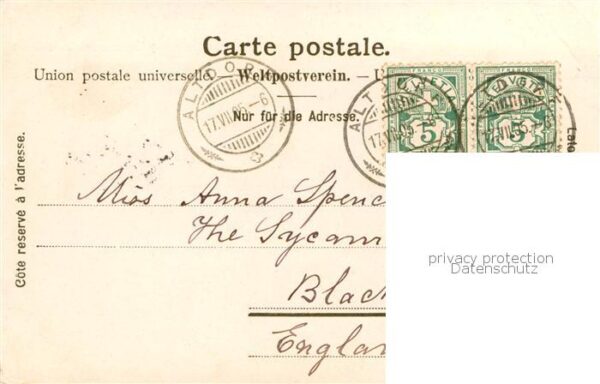 Carte postale.
Union postale universelle. — Weltpostverein. — U
Nur für die Adresse.
Côte reservé à l'adresse.
ALTDORF
17.VII.05.–6
ALTDORF
17.VII.05.
FRANCO
5
FRANCO
5
Miss Anna Spenc
The Sycam
Blac
Engla
privacy protection
Datenschutz